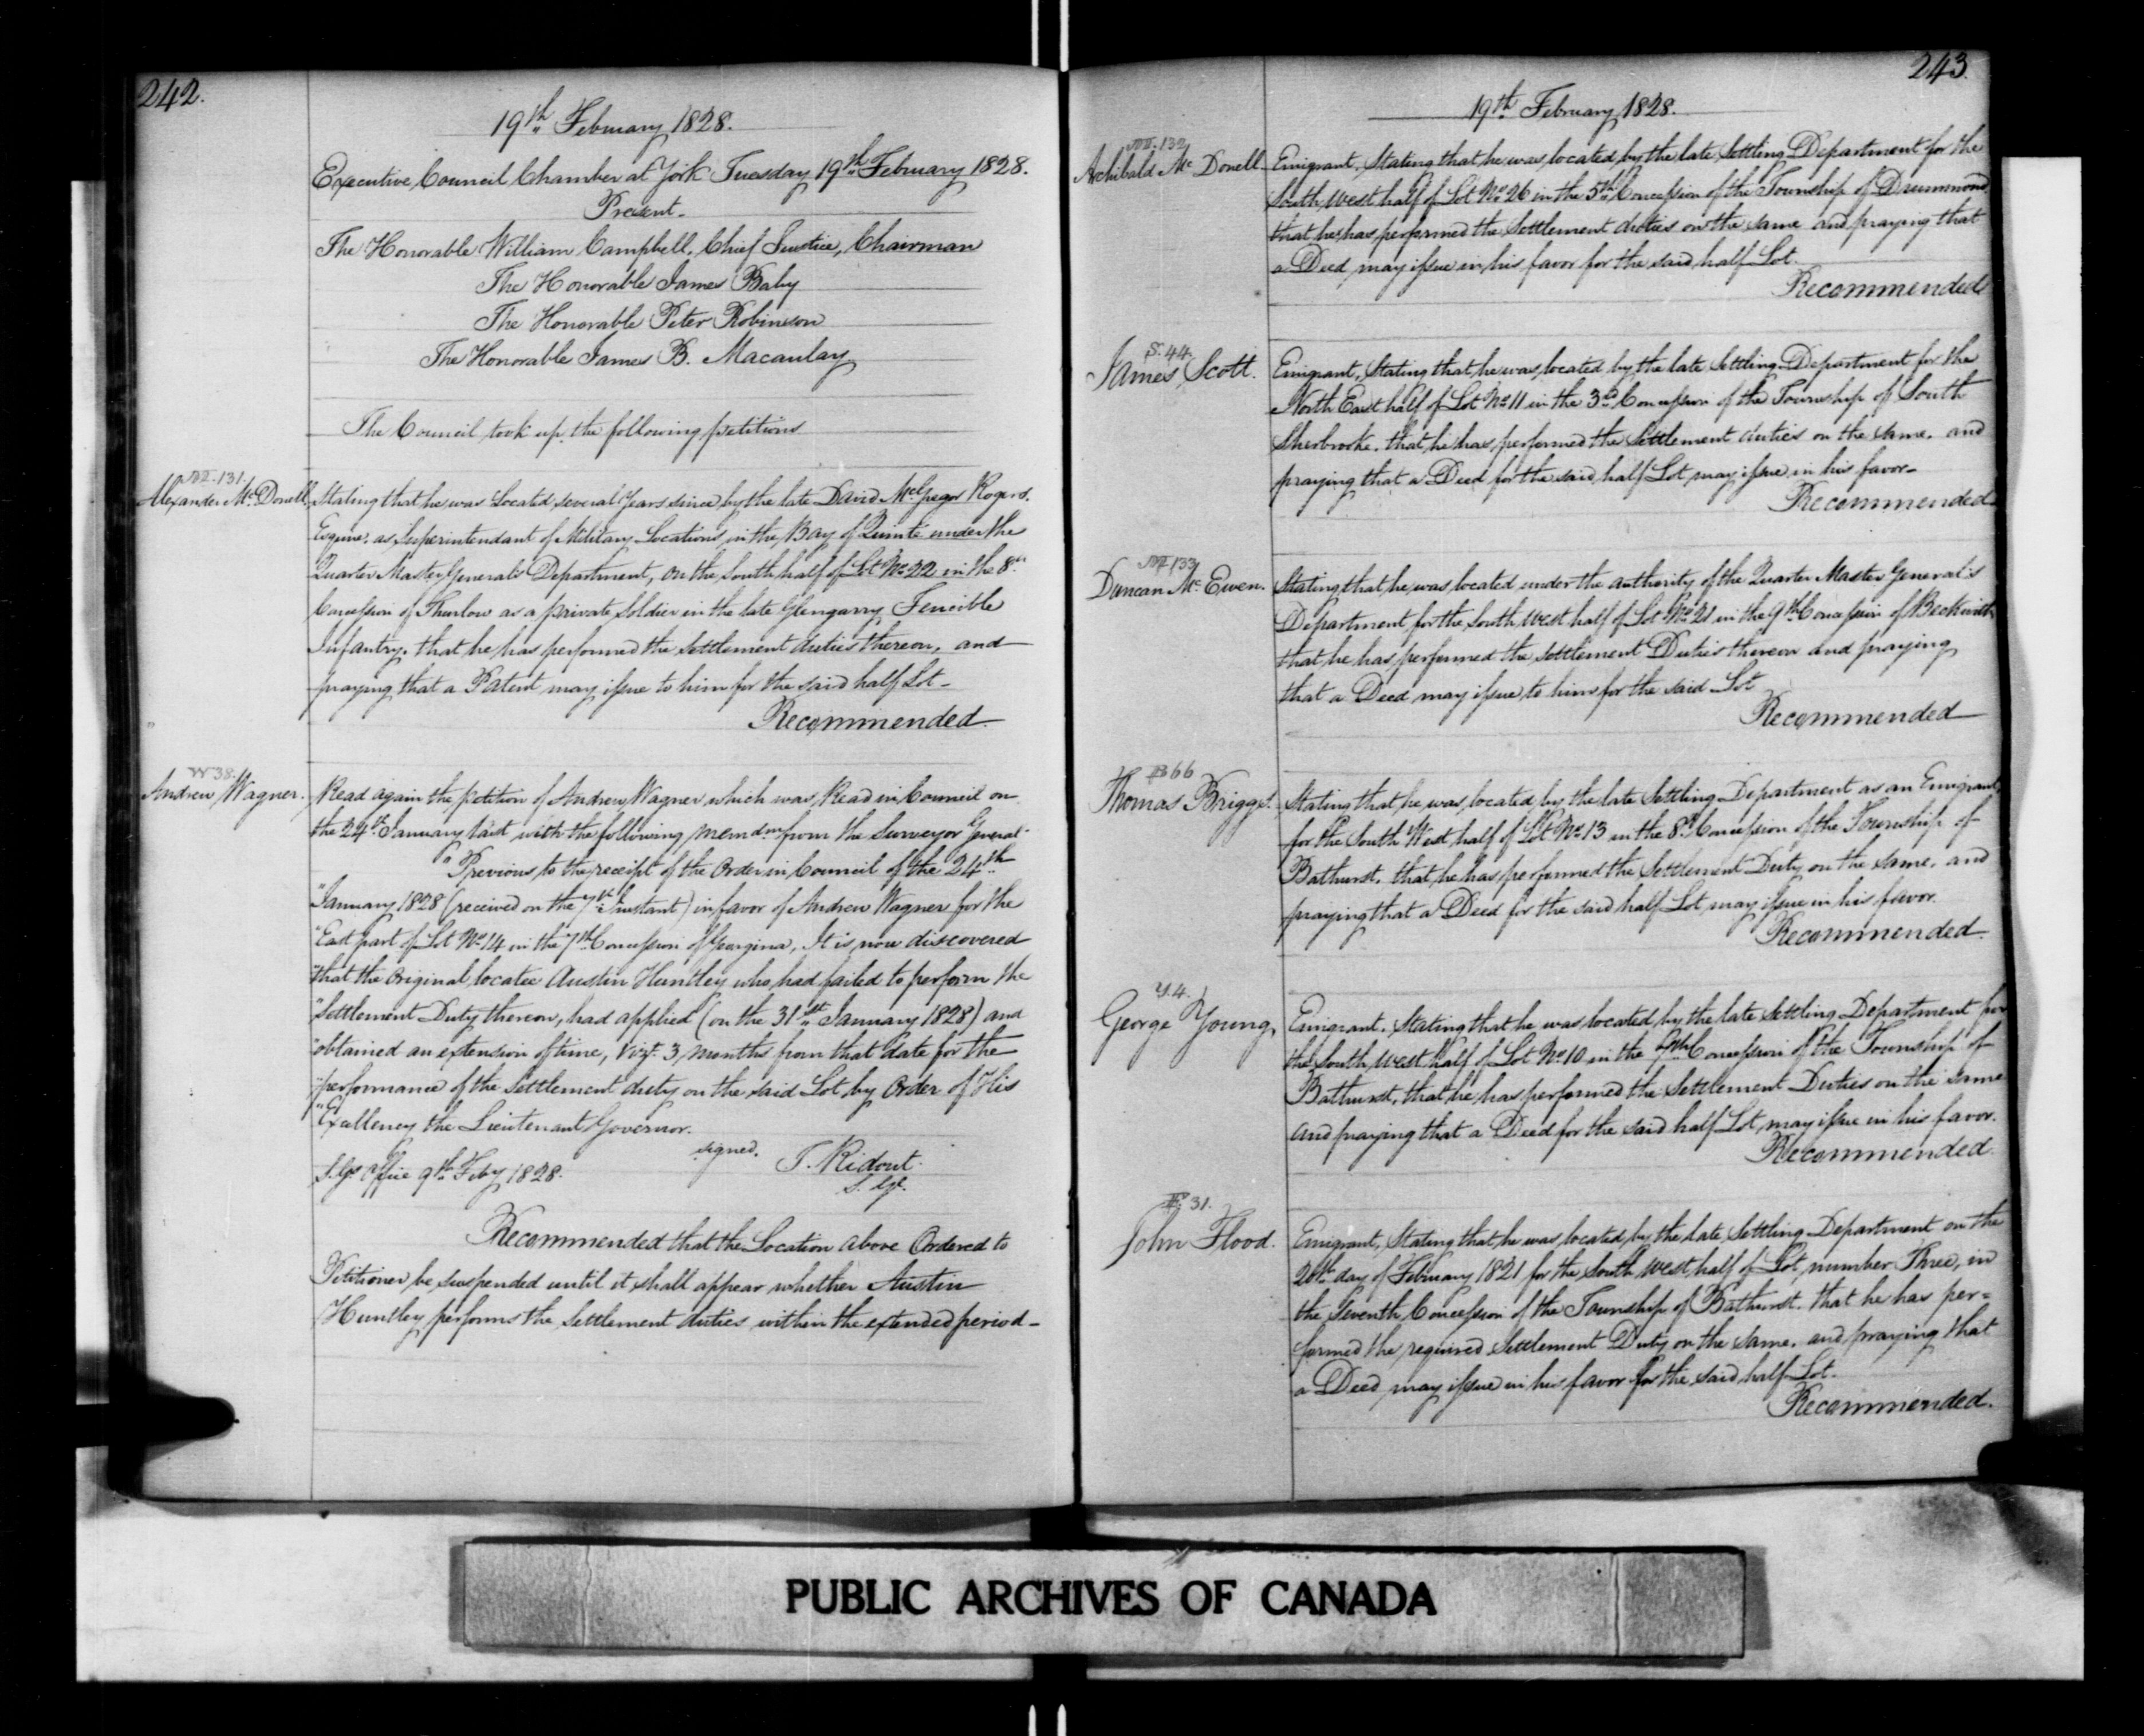 242.
19th February 1828.
Executive Council Chamber at York Tuesday 19th February 1828.
Present.
The Honorable William Campbell, Chief Justice, Chairman
The Honorable James Baby
The Honorable Peter Robinson
The Honorable James B. Macaulay
The Council took up the following petitions
M. 131.
Alexander McDonell
Stating that he was Located several Years since by the late David McGregor Rogers.
Esquire, as Superintendant of Military Locations in the Bay of Quinte under the
Quarter Master General's Department, on the South half of Lot No 22 in the 8th
Concession of Thurlow as a private Soldier in the late Glengarry Fencible
Infantry, that he has performed the settlement duties thereon, and
praying that a Patent may issue to him for the said half Lot-
Recommended.
W 38.
Andrew Wagner.
Read again the petition of Andrew Wagner which was Read in Council on
the 24th January last with the following memdm from the Surveyor General-
"Previous to the receipt of the Order in Council of the 24th
"January 1828 (received on the 7th Instant) in favor of Andrew Wagner for the
"East part of Lot No 14 in the 7th Concession of Georgina, It is now discovered
"that the Original locatee Austin Huntley who had failed to perform the
"Settlement Duty thereon, had applied (on the 31st January 1828) and
"obtained an extension of time, Vizt. 3 months from that date for the
"performance of the Settlement duty on the said Lot by Order of His
"Excellency the Lieutenant Governor.
signed. T. Ridout.
S. Gl.
S. Gs. Office 9th Feby 1828.
Recommended that the Location above Ordered to
Petitioner be suspended until it shall appear whether Austin
Huntley performs the Settlement duties within the extended period-
243.
19th February 1828.
M. 132
Archibald McDonell
Emigrant, Stating that he was located by the late Settling Department for the
South West half of Lot No 26 in the 5th Concession of the Township of Drummond
that he has performed the Settlement duties on the same and praying that
a Deed may issue in his favor for the said half Lot.
Recommended
S. 44.
James Scott.
Emigrant, Stating that he was located by the late Settling Department for the
North East half of Lot No 11 in the 3d Concession of the Township of South
Sherbrooke. that he has performed the Settlement duties on the same. and
praying that a Deed for the said half Lot may issue in his favor-
Recommended
M. 133
Duncan McEwen.
Stating that he was located under the authority of the Quarter Master General's
Department for the South West half of Lot No 21 in the 9th Concession of Beckwith
that he has performed the settlement Duties thereon and praying
that a Deed may issue to him for the said Lot
Recommended
B 66
Thomas Briggs.
Stating that he was located by the late Settling Department as an Emigrant
for the South West half of Lot No 13 in the 8th Concession of the Township of
Bathurst. that he has performed the Settlement Duty on the same. and
praying that a Deed for the said half Lot may issue in his favor.
Recommended.
Y. 4.
George Young,
Emigrant. Stating that he was located by the late Settling Department for
the South West half of Lot No 10 in the Concession of the Township of
Bathurst, that he has performed the Settlement Duties on the same
and praying that a Deed for the said half Lot may issue in his favor.
Recommended.
F. 31.
John Flood.
Emigrant, Stating that he was located by the late Settling Department on the
20th day of February 1821 for the South West half of Lot number Three, in
the Seventh Concession of the Township of Bathurst. that he has per=
formed the required Settlement Duty on the same. and praying that
a Deed may issue in his favor for the said half Lot.
Recommended.
PUBLIC ARCHIVES OF CANADA